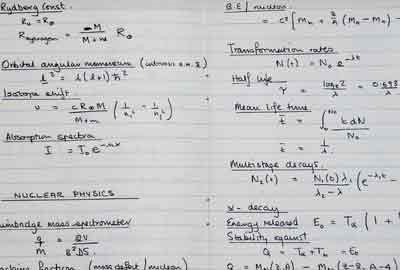 Rydberg Const.
R₀ = R∞
R_hydrogen = M / (M + m) R∞
Orbital angular momentum
l² = l(l+1)ħ²
Isotope shift.
υ = cR∞M / (M+m) (1/n₁² - 1/n₂²)
Absorption spectra
I = I₀e
NUCLEAR PHYSICS
Bainbridge mass spectrometer
q/M = 2V / B²DS
fraction (mass defect / nucleon)
B.E / nucleon
= c² [Mn + Z/A (MH - Mn) -
Transformation rates
N(t) = N₀ e^-λt
Half life
τ = loge2 / λ = 0.693 / λ
Mean life time
t̄ = ∫₀^N₀ t dN / N₀
t̄ = 1/λ
Multistage decays.
N₂(t) = N₁(0) λ₁ / (λ₂ - λ₁) (e^-λ₁t -
α - decay
Energy released E₀ = Tα (1 +
Stability against
Q = Tα + Tb = E₀
Q = Mn(Z,A) - Mn(Z-2, A-4)